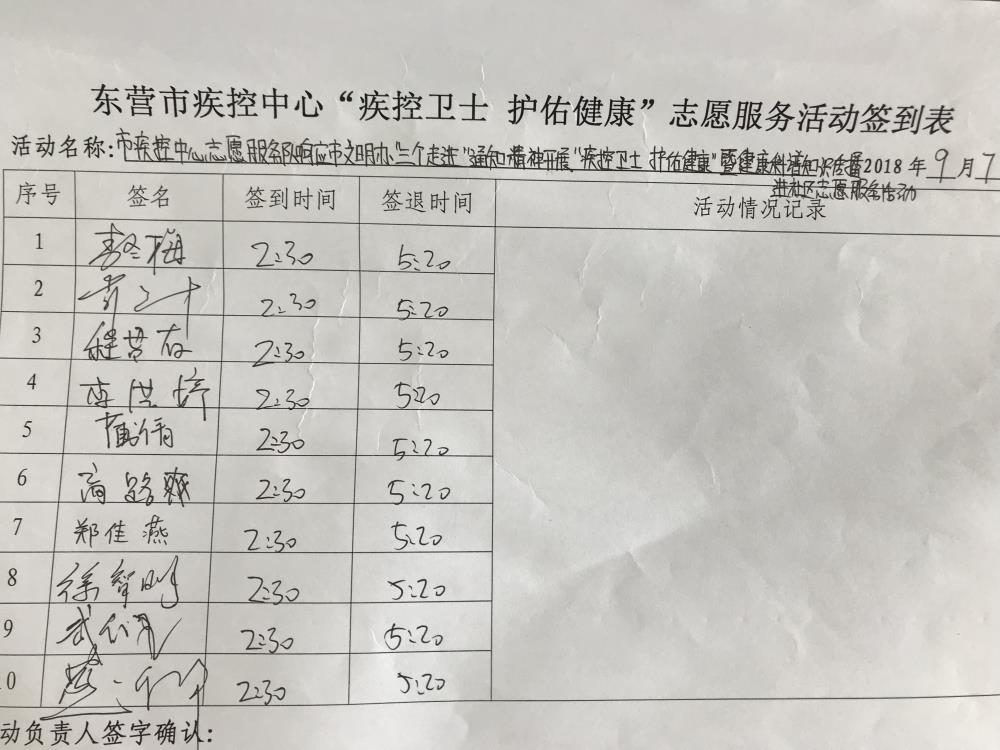 东营市疾控中心“疾控卫士 护佑健康”志愿服务活动签到表
活动名称:市疾控中心志愿服务队响应市文明办“三个走进”通知精神开展“疾控卫士 护佑健康”暨健康科普知识传播2018年9月7
进社区志愿服务活动
序号 签名 签到时间 签退时间 活动情况记录
1 2:30 5:20
2 2:30 5:20
3 2:30 5:20
4 李洪婷 2:30 5:20
5 2:30 5:20
6 2:30 5:20
7 郑佳燕 2:30 5:20
8 徐智明 2:30 5:20
9 2:30 5:20
10 2:30 5:20
动负责人签字确认: